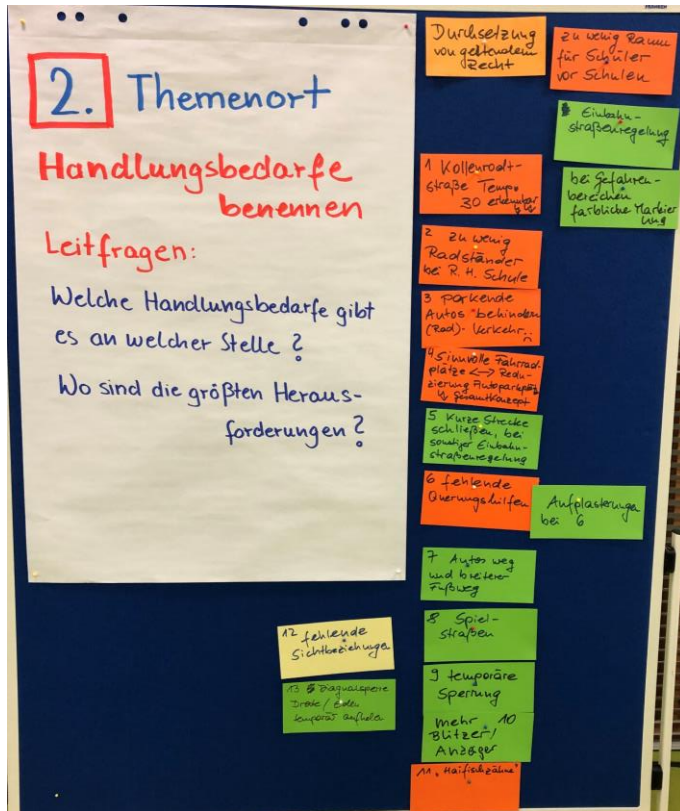 2. Themenort
Handlungsbedarfe
benennen
Leitfragen:
Welche Handlungsbedarfe gibt
es an welcher Stelle?
Wo sind die größten Heraus-
forderungen?
Durchsetzung
von geltendem
Recht
zu wenig Raum
für Schüler
vor Schulen
Einbahn-
straßenregelung
bei Gefahren-
bereichen
farbliche Markier
ung
1 Kollenrodt-
straße Tempo
30 erkennbar
2 zu wenig
Radständer
bei R. H. Schule
3 parkende
Autos behindern
(Rad)-Verkehr
4 Sinnvolle Fahrrad-
plätze <-> Redu-
zierung Autoparkplätze
↳ Gesamtkonzept
5 Kurze Strecke
schließen, bei
sonstiger Einbahn-
straßenregelung
6 fehlende
Querungshilfen
Aufplasterungen
bei 6
7 Autos weg
und breiterer
Fußweg
8 Spiel-
straßen
9 temporäre
Sperrung
mehr 10
Blitzer/
Anzeiger
11 "Haifischzähne"
12 fehlende
Sichtbeziehungen
13 Diagonalsperre
temporär aufheben